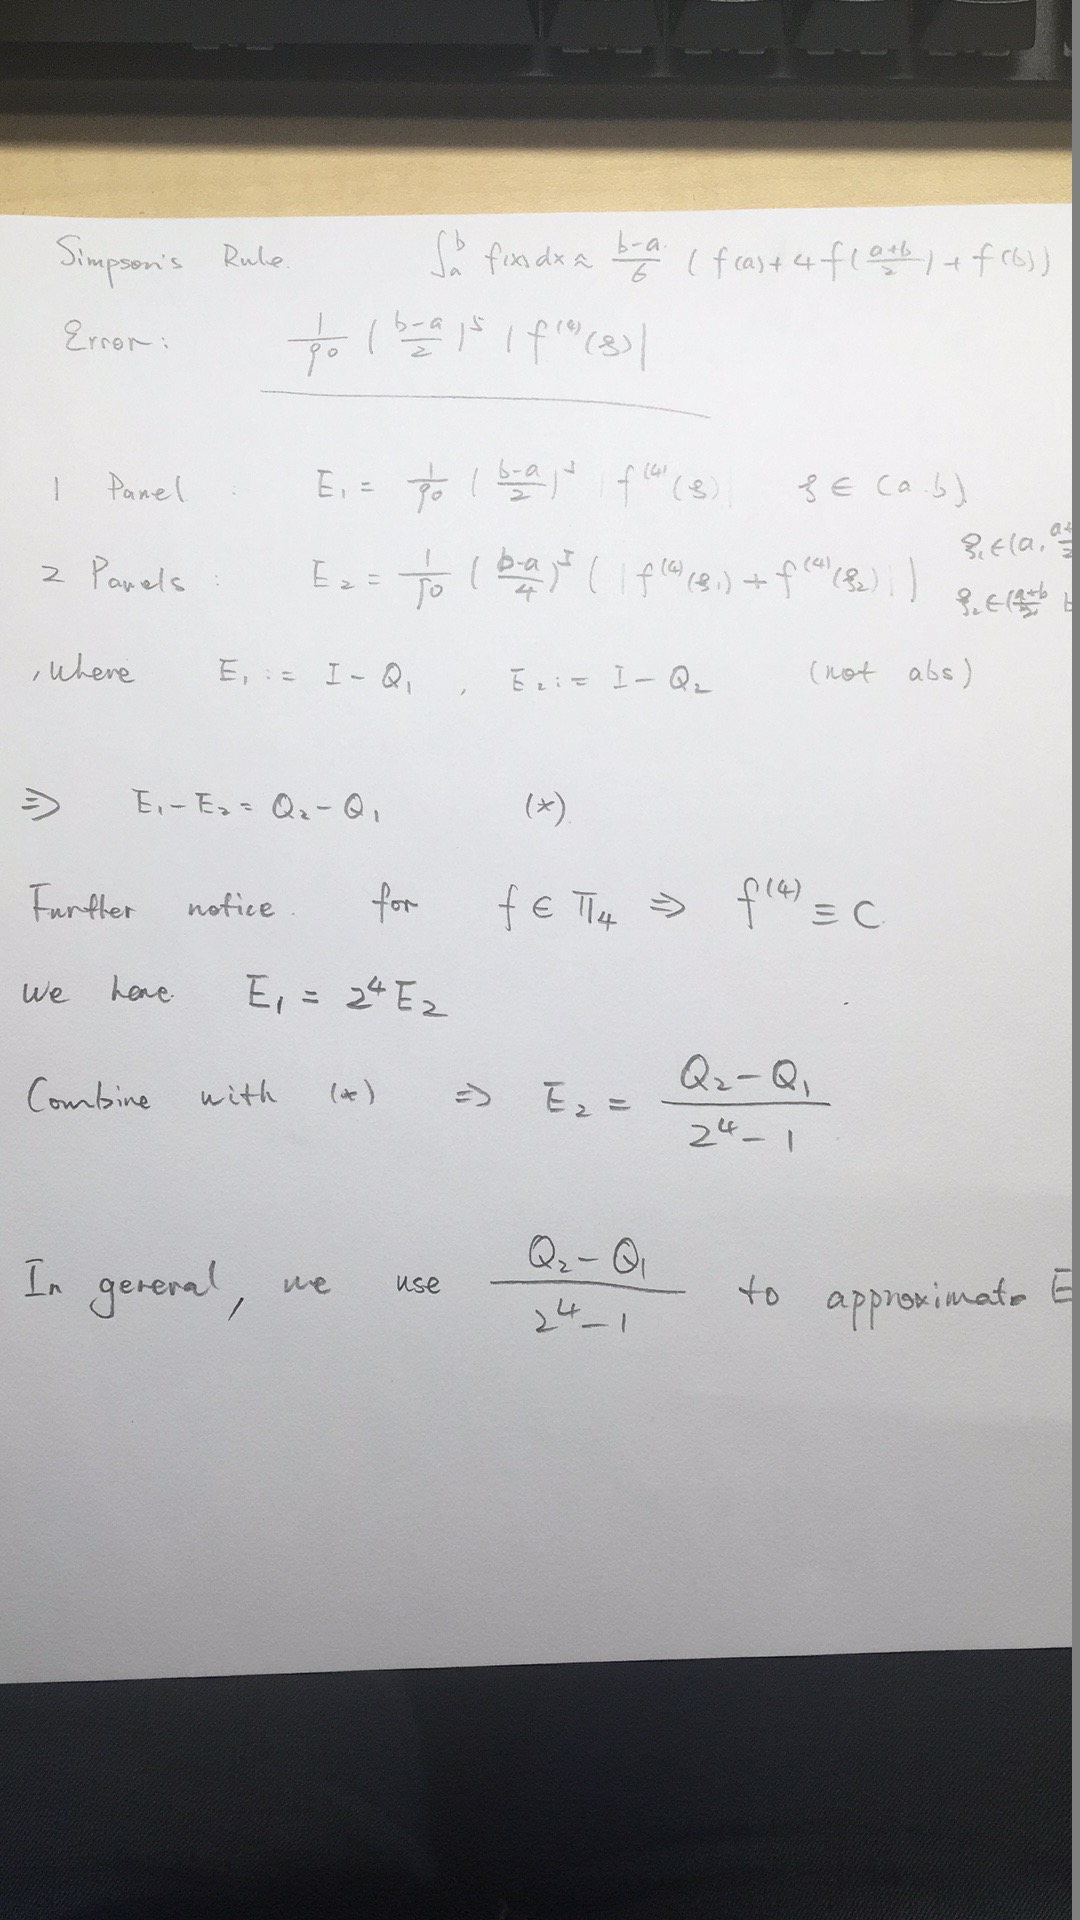 Simpson's Rule. ∫_a^b f(x)dx ≈ (b-a)/6 (f(a)+4f((a+b)/2)+f(b))
Error: 1/90 ((b-a)/2)^5 |f^(4)(ξ)|
1 Panel : E₁ = 1/90 ((b-a)/2)^5 |f^(4)(ξ)| ξ ∈ (a.b).
2 Panels : E₂ = 1/90 ((b-a)/4)^5 (|f^(4)(ξ₁) + f^(4)(ξ₂)|) ξ₁∈(a, a+
ξ₂∈((a+b)/2, b
, where E₁ := I - Q₁ , E₂ := I - Q₂ (not abs)
⇒ E₁ - E₂ = Q₂ - Q₁ (*)
Further notice. for f ∈ Π₄ ⇒ f^(4) ≡ C.
we have. E₁ = 2⁴E₂
Combine with (*) ⇒ E₂ = (Q₂-Q₁)/(2⁴-1)
In general, we use (Q₂-Q₁)/(2⁴-1) to approximate E